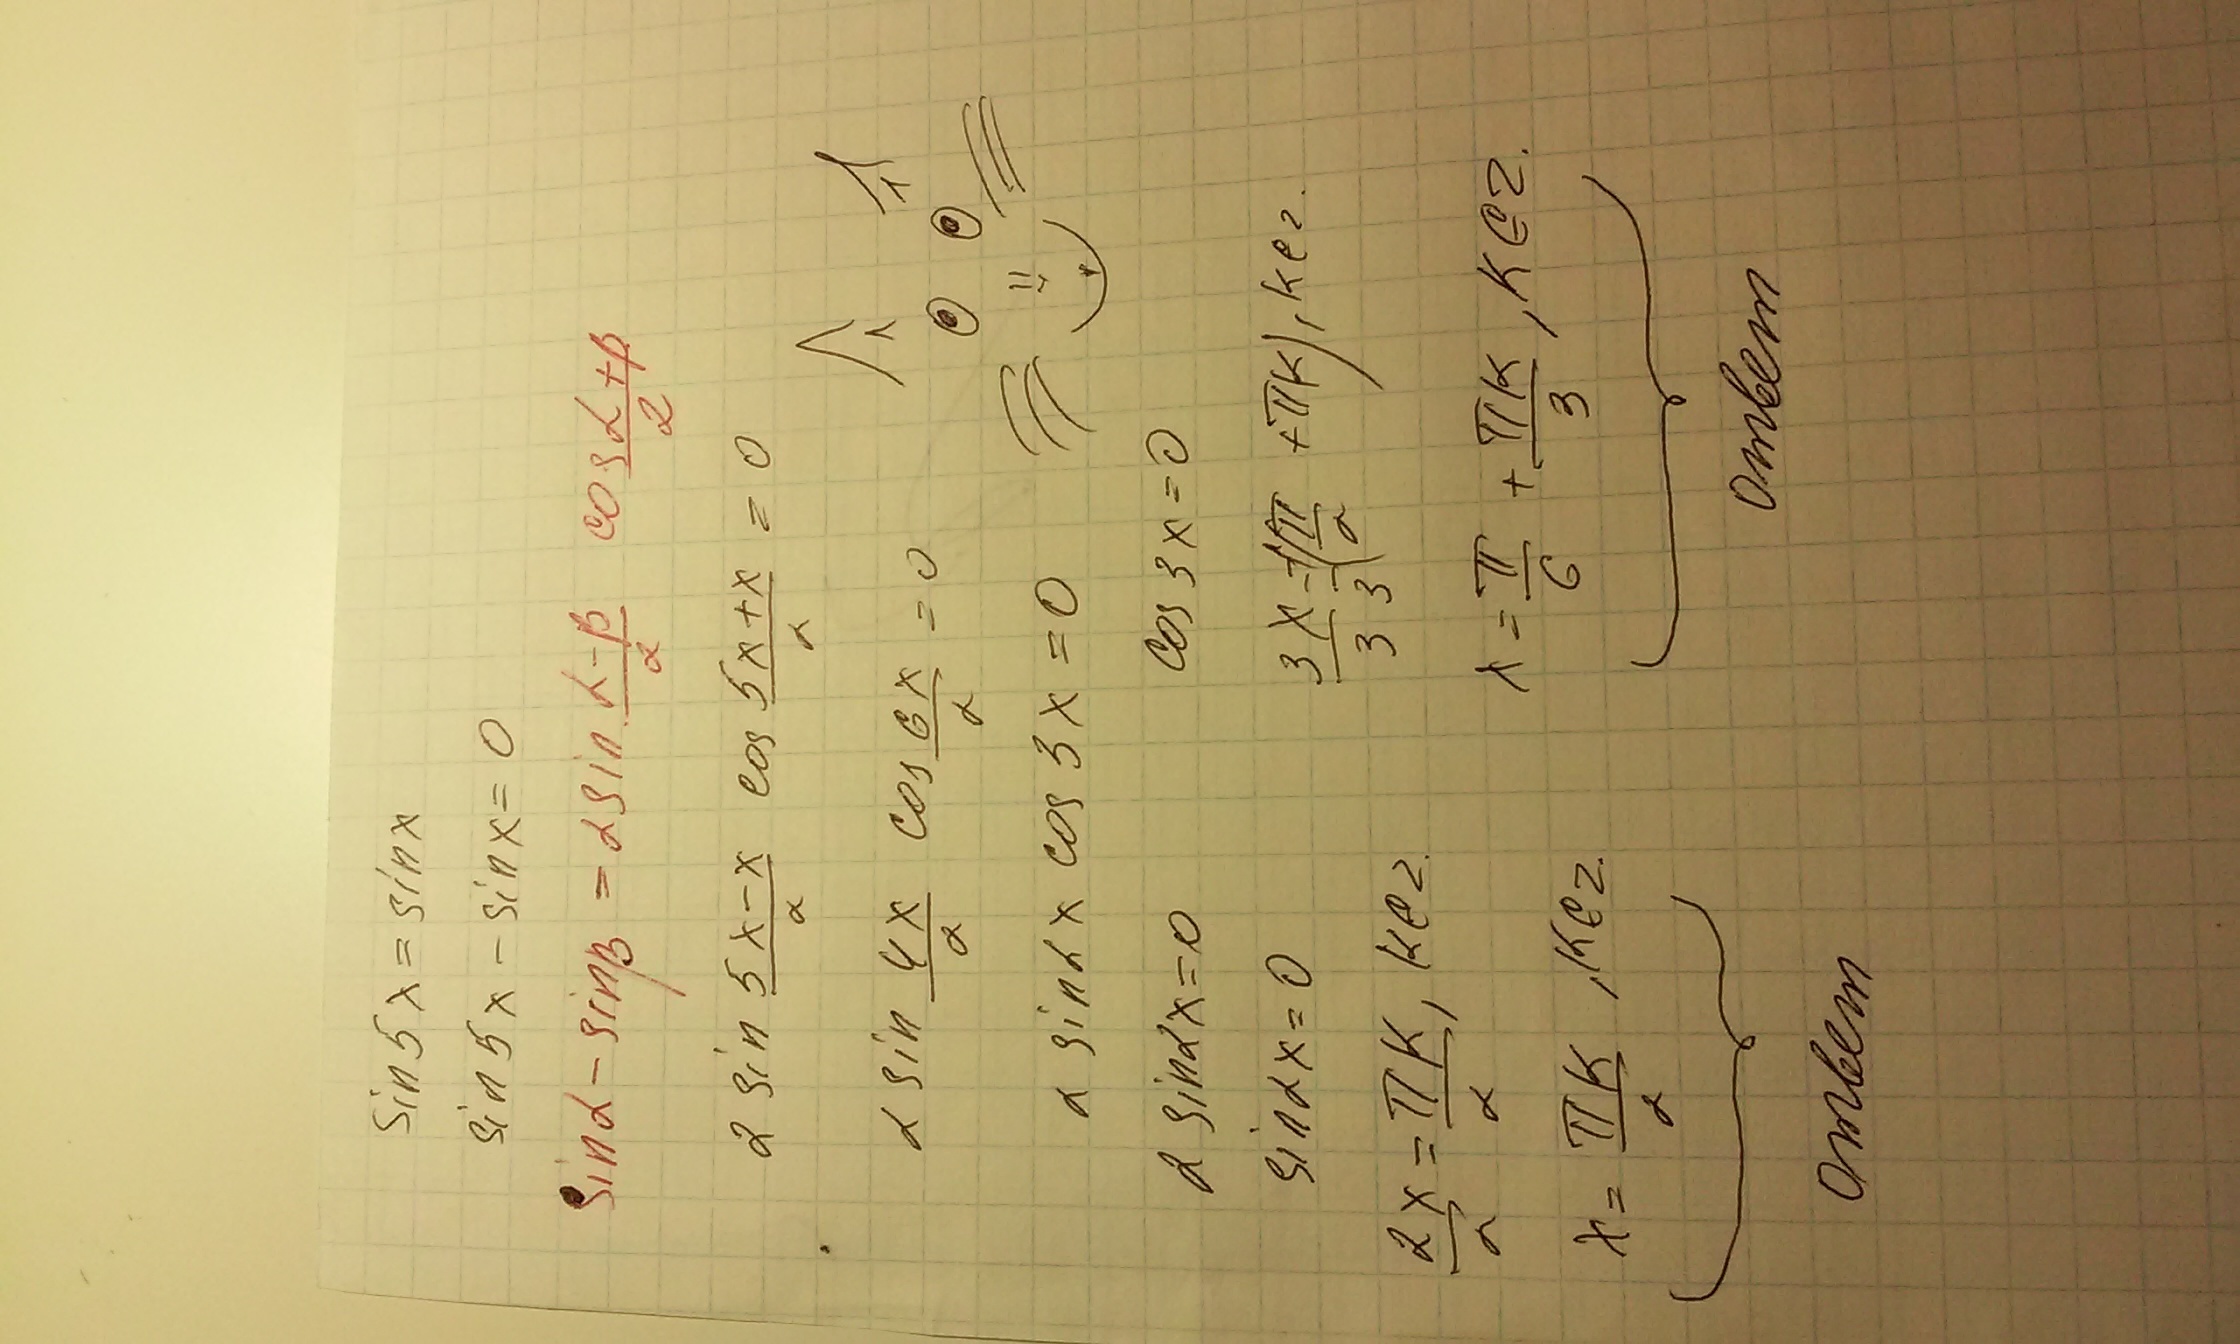 sin 5x = sin x
sin 5x - sin x = 0
sin α - sin β = 2 sin (α-β)/2 cos (α+β)/2
2 sin (5x-x)/2 cos (5x+x)/2 = 0
2 sin 4x/2 cos 6x/2 = 0
2 sin 2x cos 3x = 0
2 sin 2x = 0
sin 2x = 0
2x/2 = πk/2, k∈z.
x = πk/2, k∈z.
Ответ
cos 3x = 0
3x/3 = 1/3(π/2 + πk), k∈z.
x = π/6 + πk/3, k∈z.
Ответ